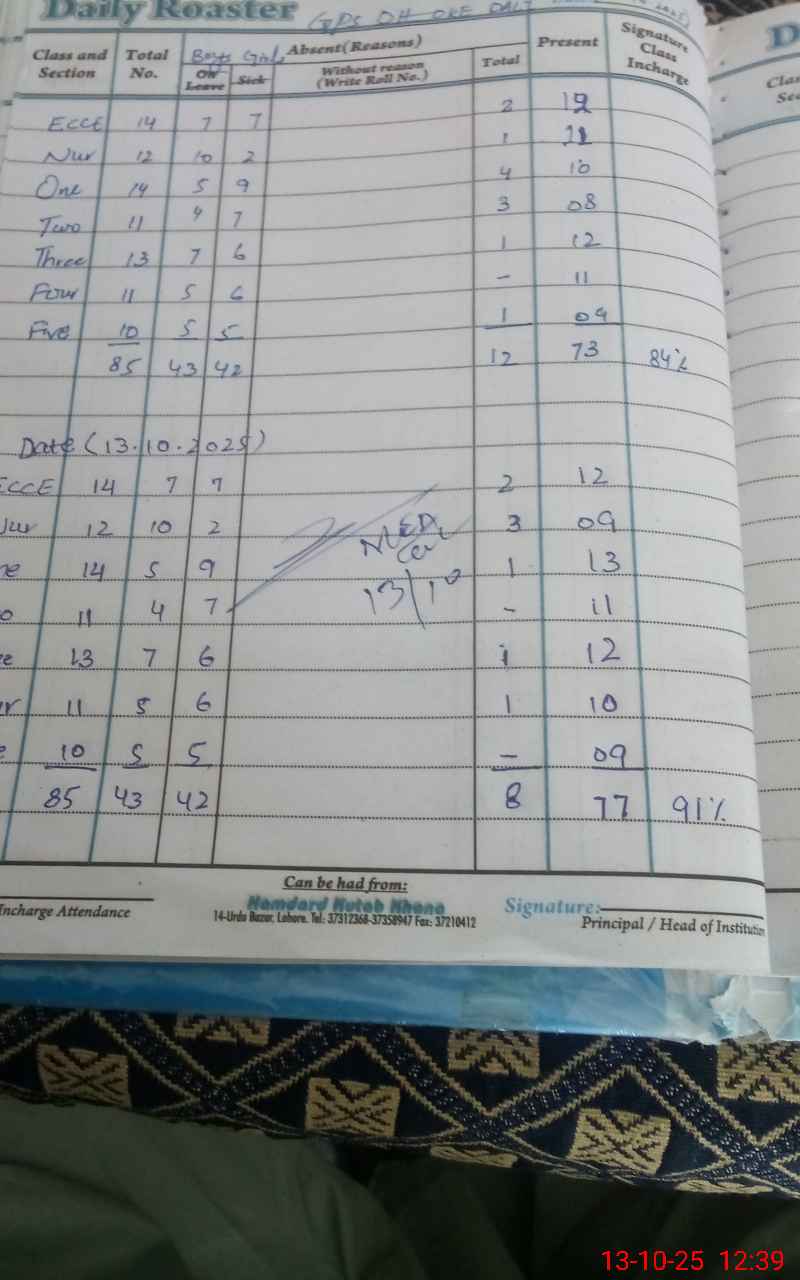 Daily Roaster GPS DH OKE DALI
Class and Section Total No. Boys Girls Absent (Reasons) Present Signature Class Incharge
On Leave Sick Without reason (Write Roll No.) Total
ECCE 14 7 7 2 12
Nur 12 10 2 1 11
One 14 5 9 4 10
Two 11 4 7 3 08
Three 13 7 6 1 12
Four 11 5 6 - 11
Five 10 5 5 1 09
85 43 42 12 73 84%
Date (13.10.2025)
ECCE 14 7 7 2 12
Nur 12 10 2 3 09
ne 14 5 9 1 13
o 11 4 7 - 11
ee 13 7 6 1 12
ur 11 5 6 1 10
e 10 5 5 - 09
85 43 42 8 77 91%
13/10
Can be had from:
Hamdard Kutab Khana
14-Urdu Bazar, Lahore. Tel: 37312368-37358947 Fax: 37210412
Incharge Attendance
Signature:
Principal / Head of Institution
D
Clas
Sec
13-10-25 12:39